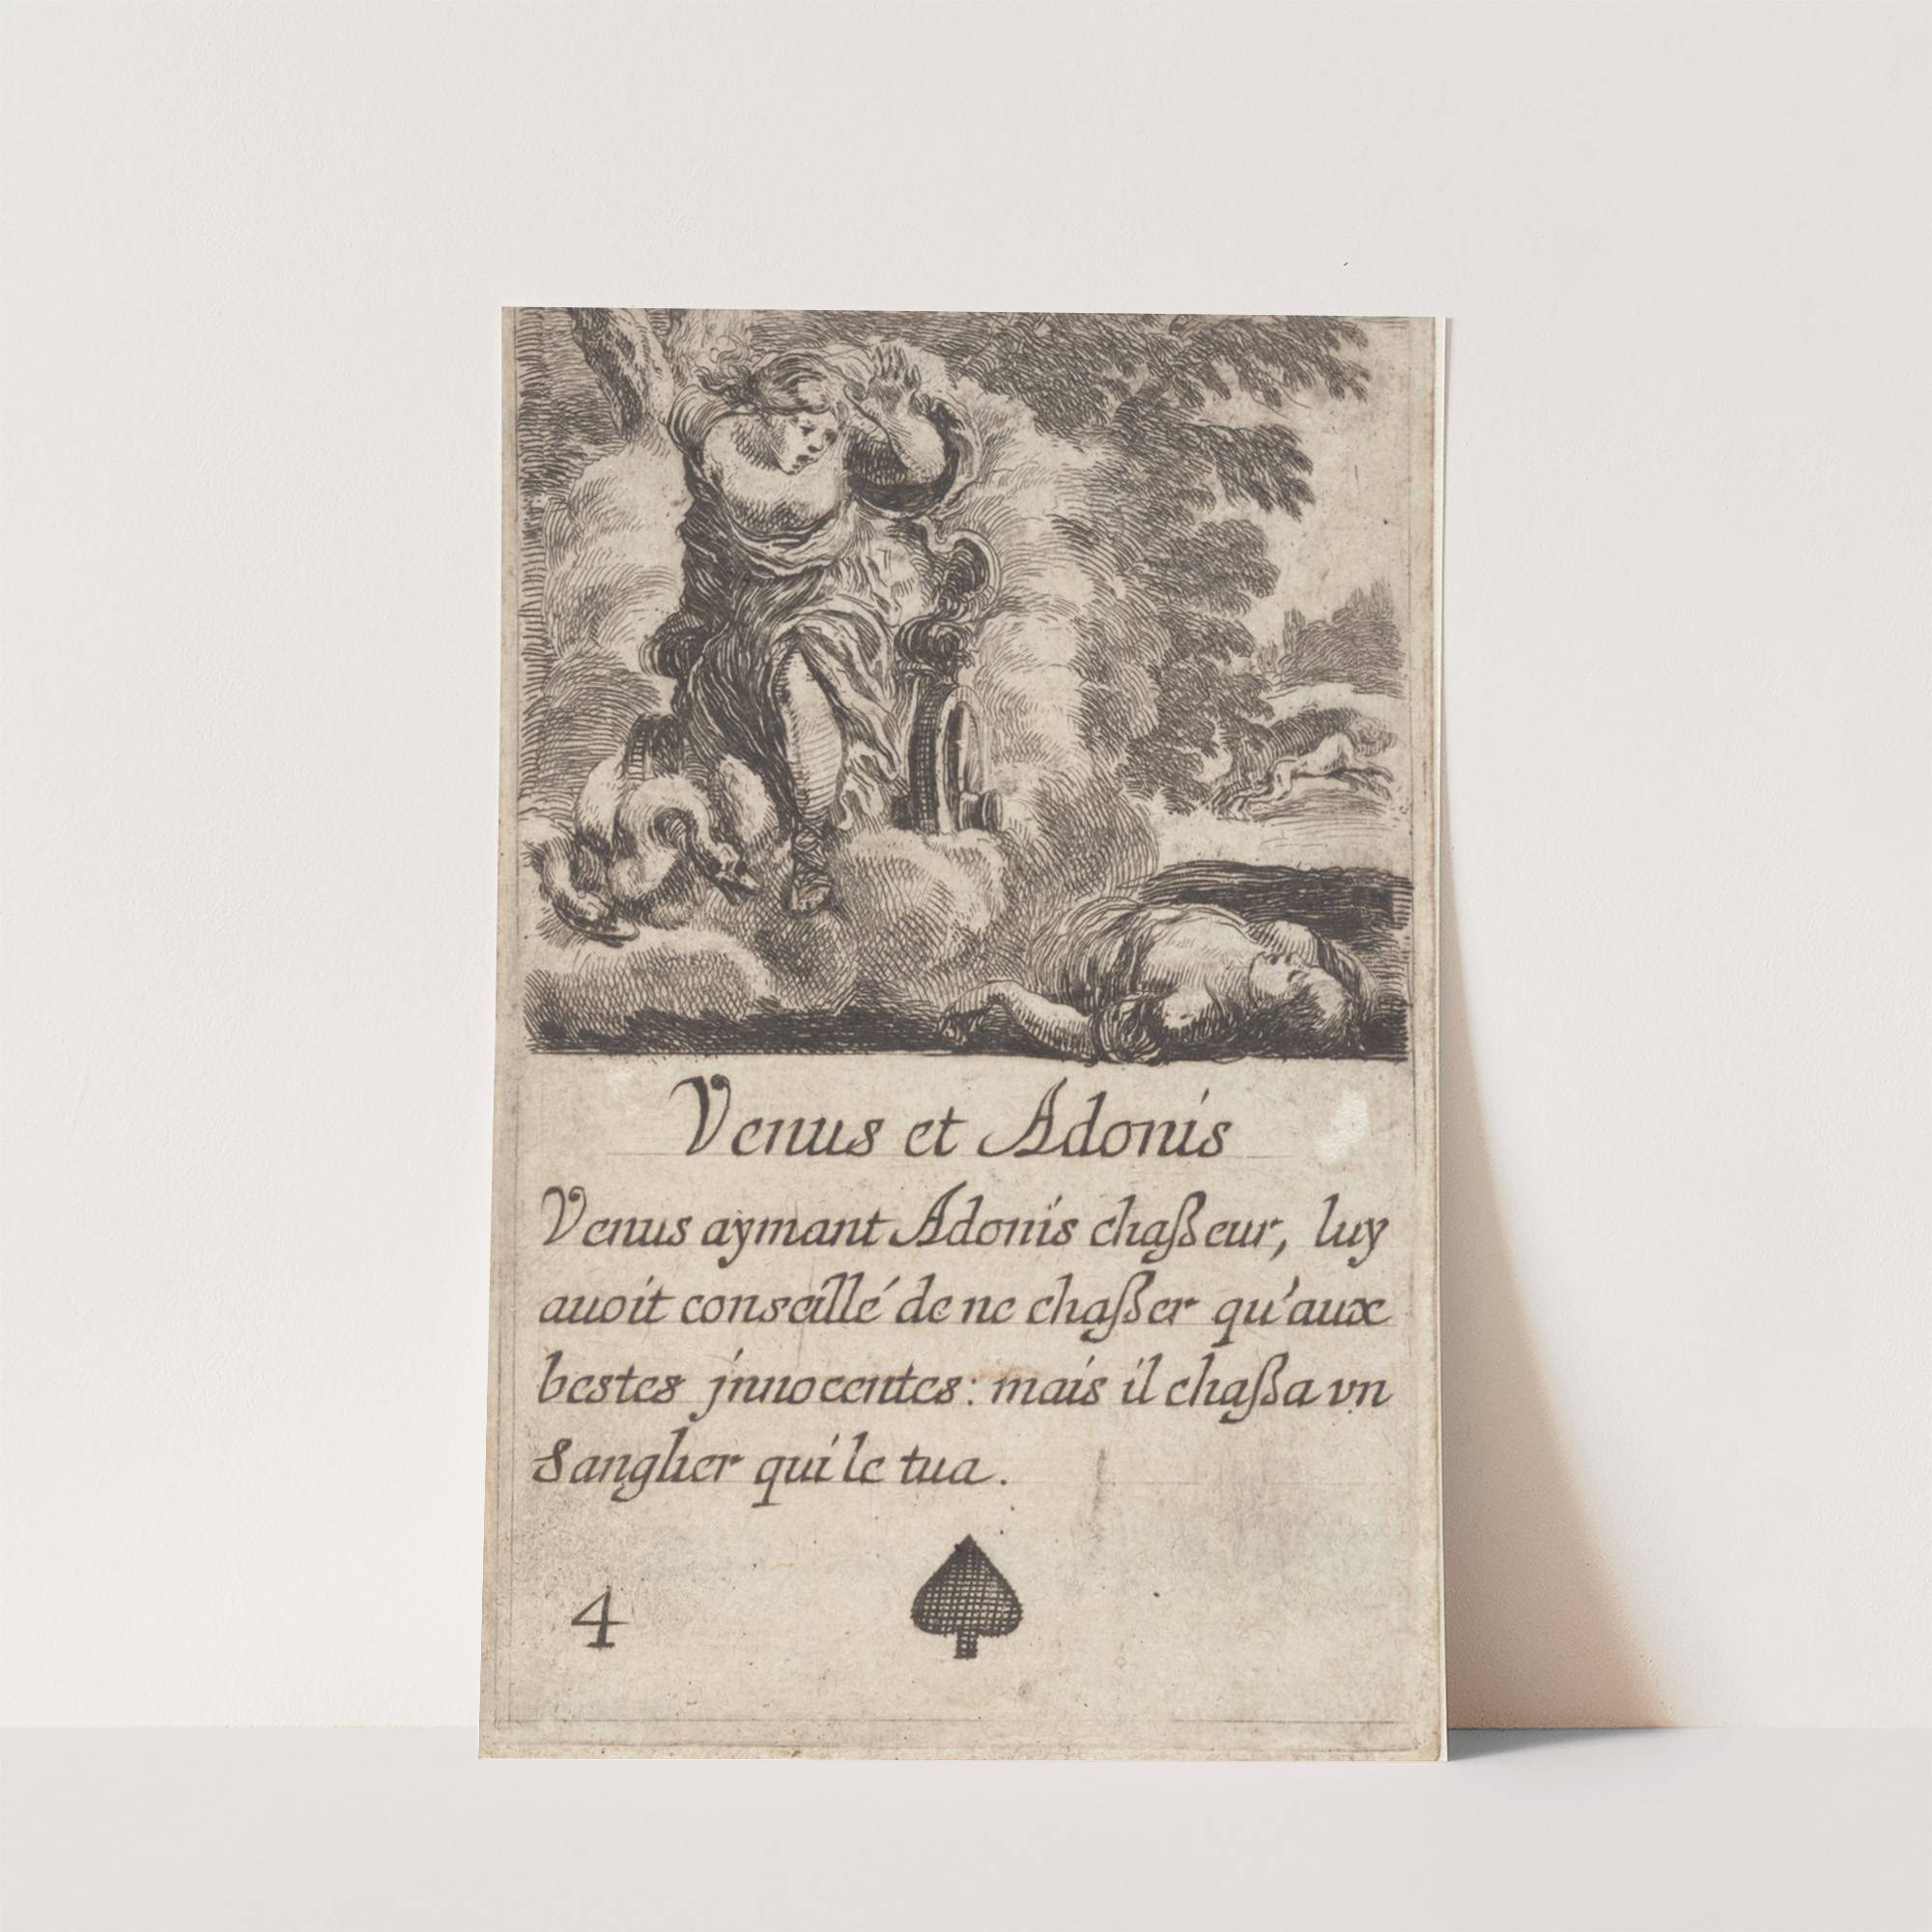 Venus et Adonis
Venus aymant Adonis chaßeur, luy
auoit conseillé de ne chaßer qu'aux
bestes jnnocentes: mais il chaßa vn
Sanglier qui le tua.
4